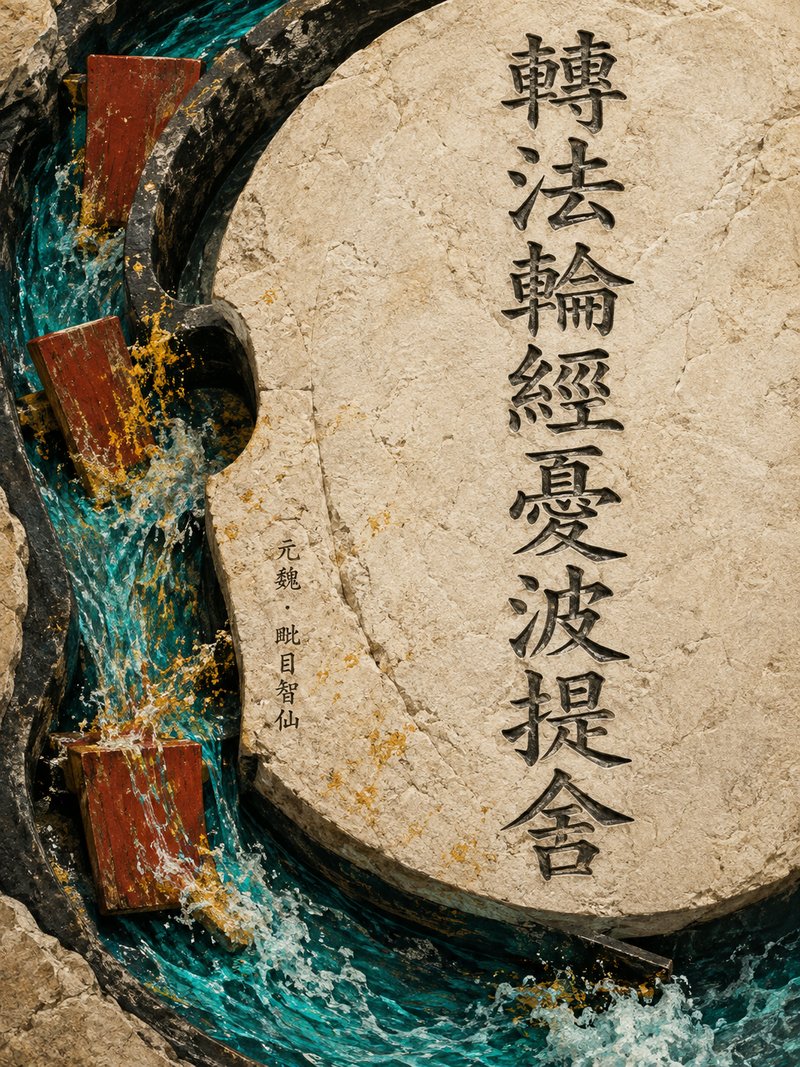 轉法輪經憂波提舍
元魏・毗目智仙